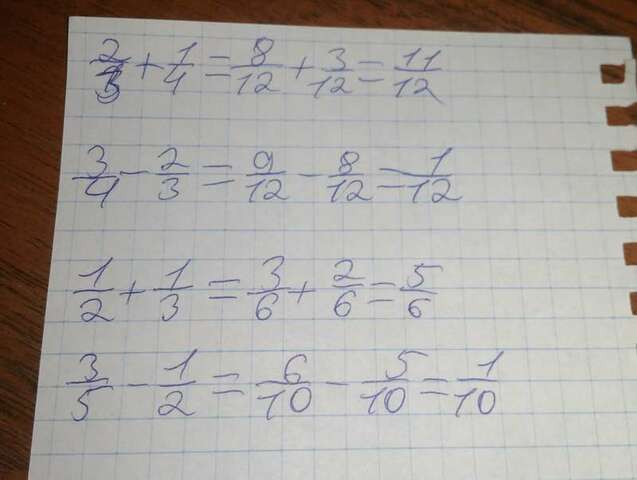 2/3 + 1/4 = 8/12 + 3/12 = 11/12
3/4 - 2/3 = 9/12 - 8/12 = 1/12
1/2 + 1/3 = 3/6 + 2/6 = 5/6
3/5 - 1/2 = 6/10 - 5/10 = 1/10